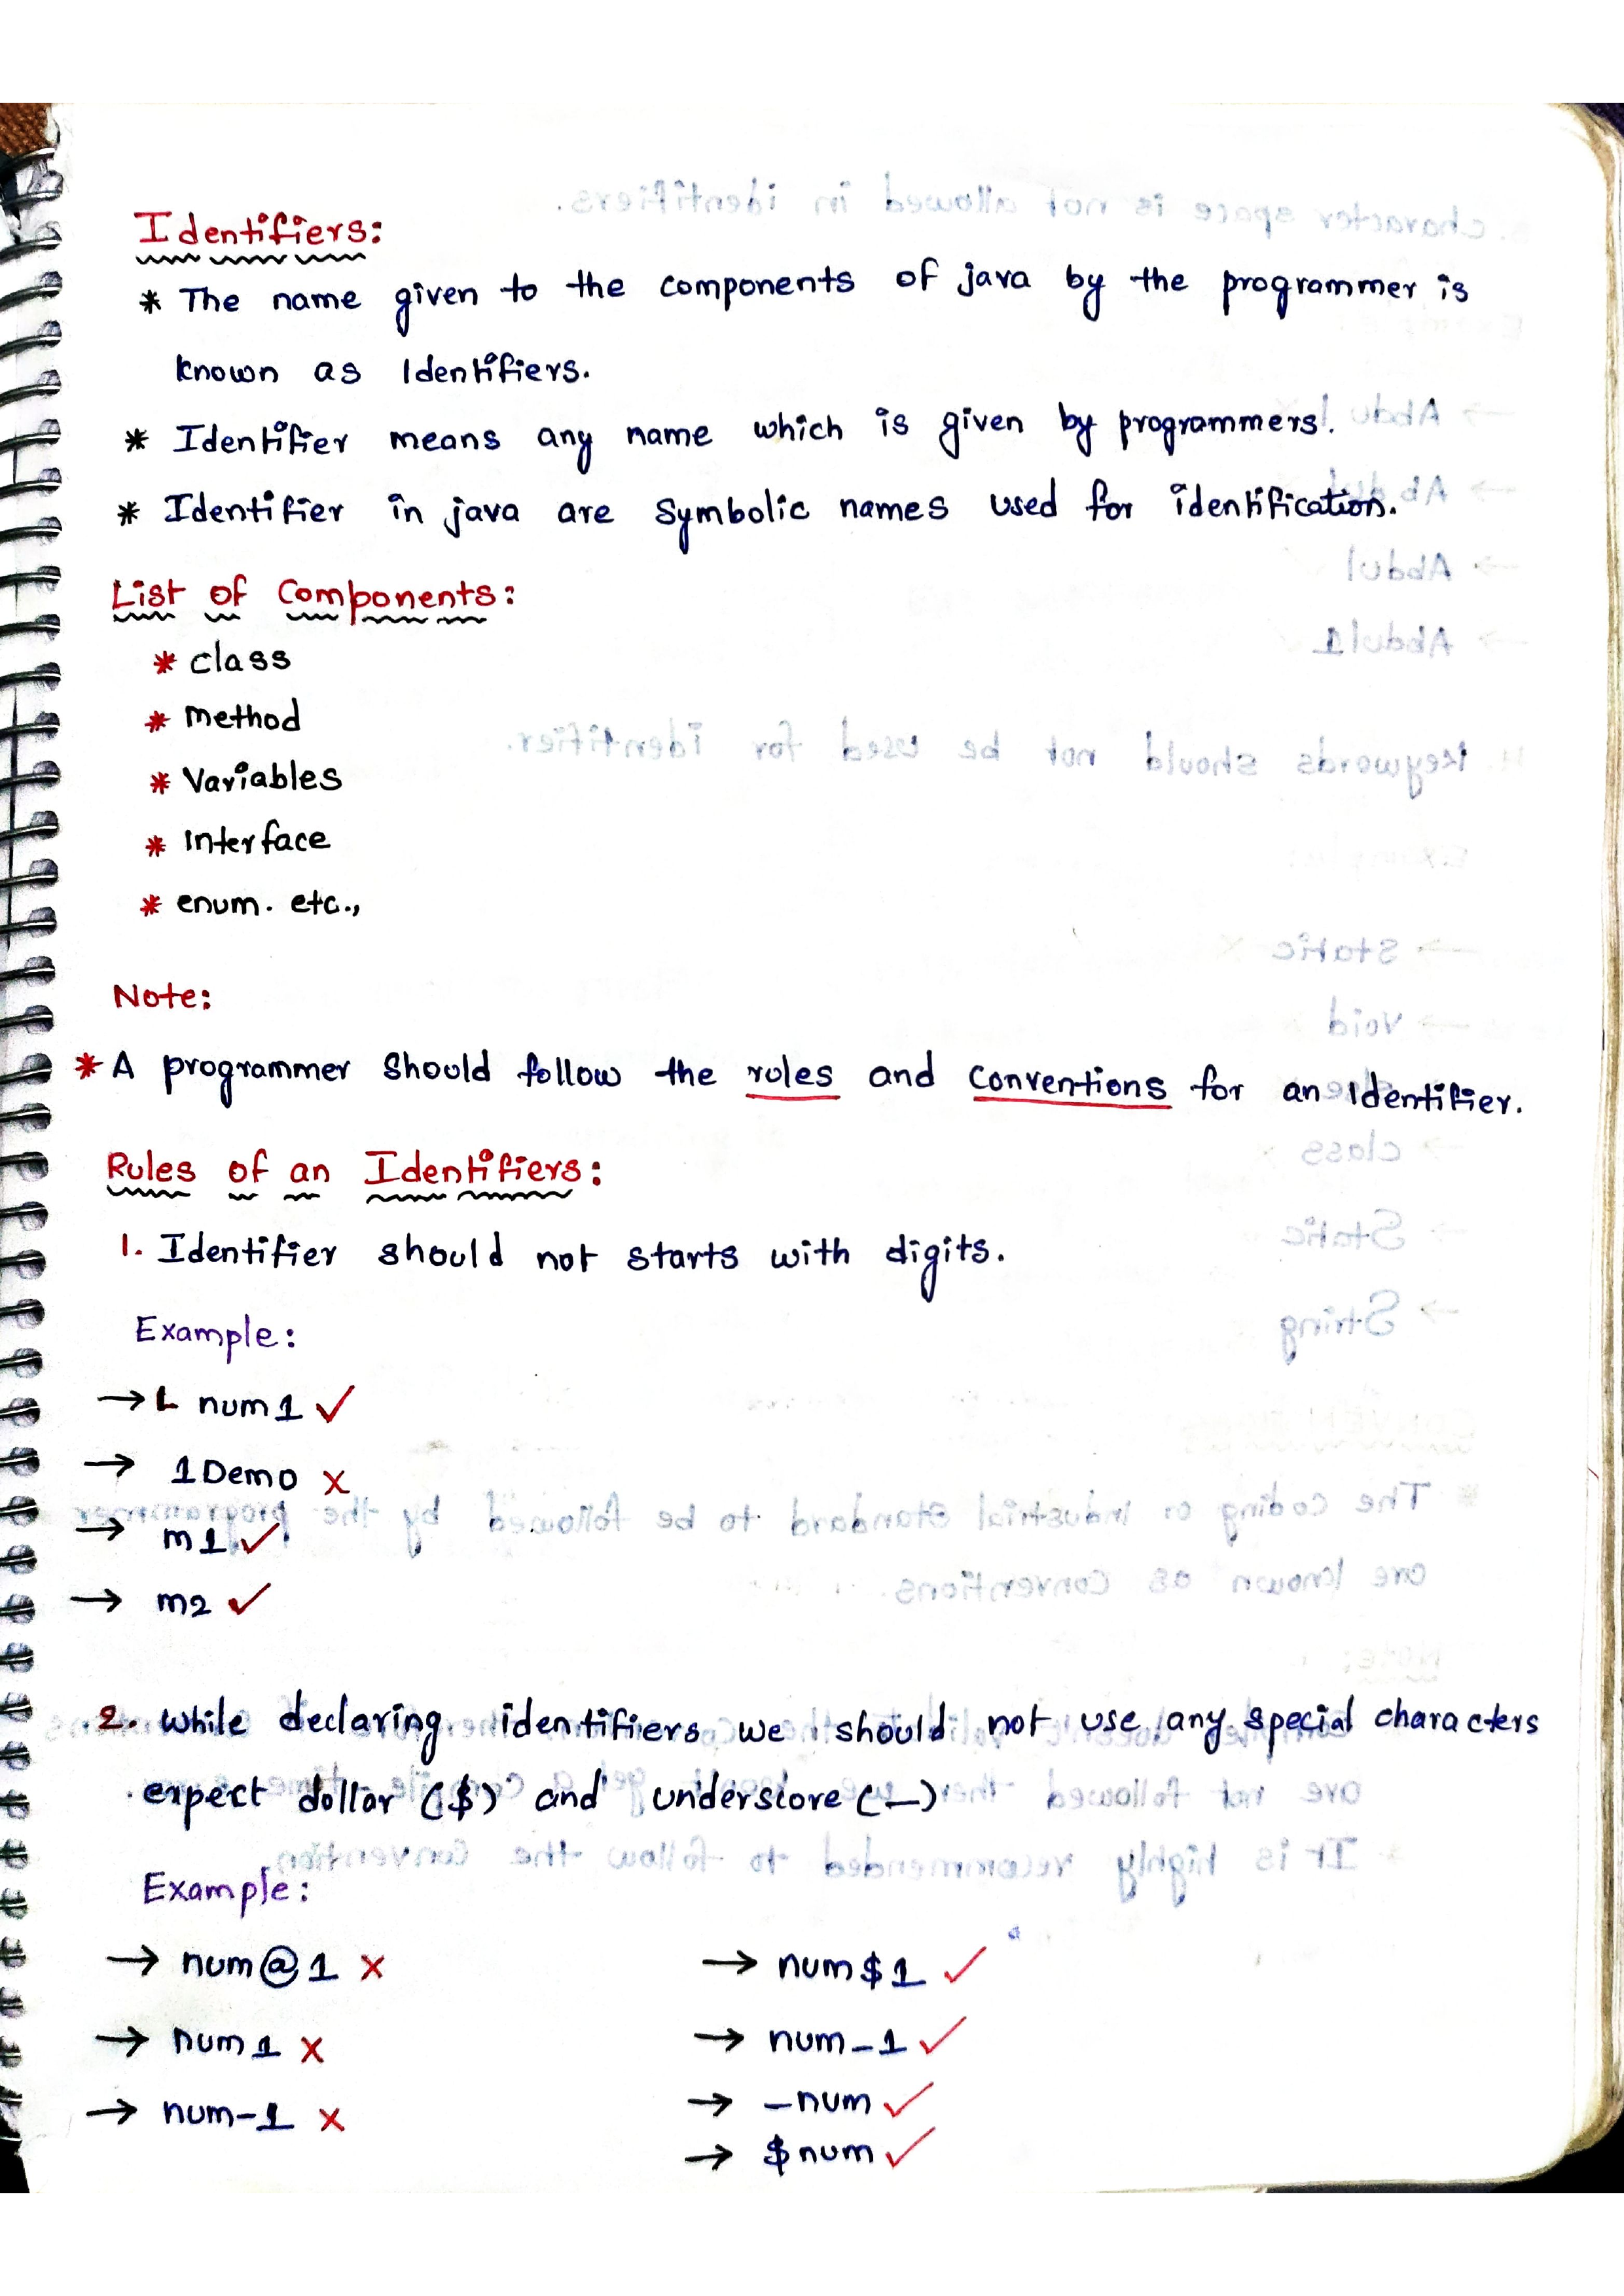 Identifiers:
* The name given to the components of java by the programmer is
known as Identifiers.
* Identifier means any name which is given by programmers.
* Identifier in java are symbolic names used for identification.
List of Components:
* class
* method
* Variables
* Interface
* enum. etc.,
Note:
* A programmer should follow the roles and conventions for an Identifier.
Rules of an Identifiers:
1. Identifier should not starts with digits.
Example:
→ num1 ✓
→ 1Demo x
→ m1 ✓
→ m2 ✓
2. While declaring identifiers we should not use any special characters
expect dollar ($) and underscore (_)
Example:
→ num@1 x
→ num1 x
→ num-1 x
→ num$1 ✓
→ num_1 ✓
→ _num ✓
→ $num ✓